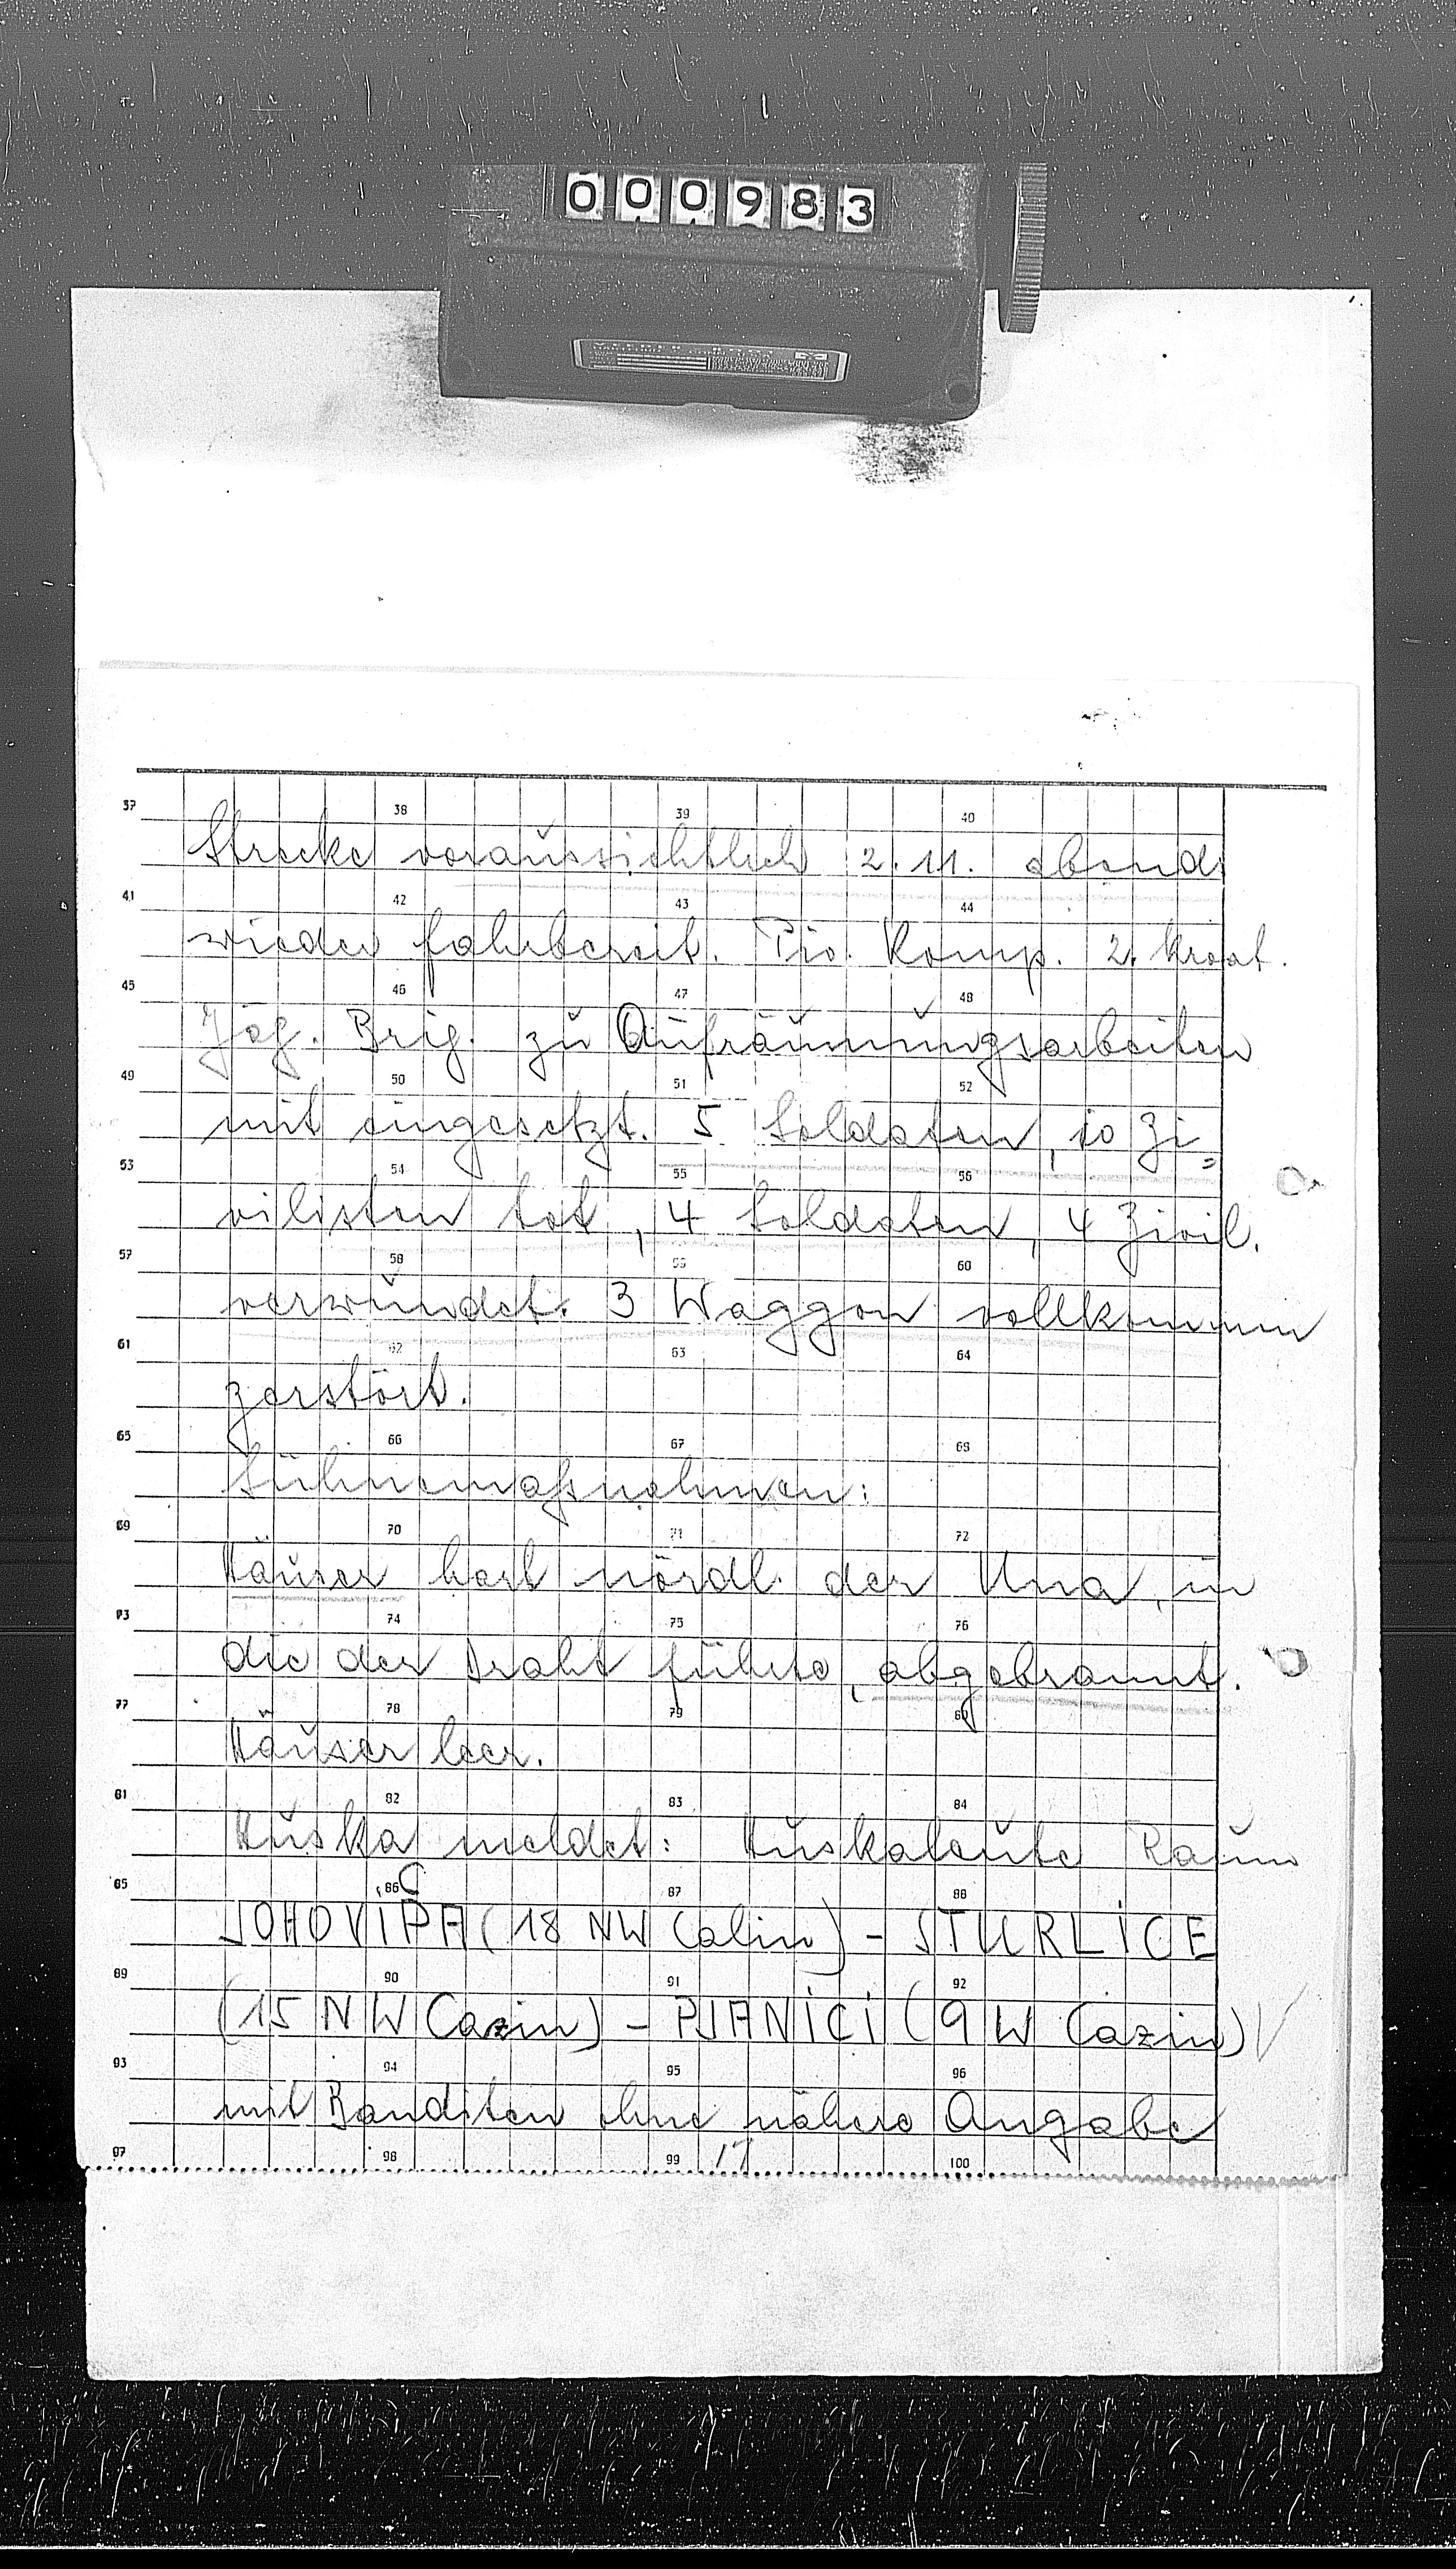 000983
37 38 39 40
Strecke voraussichtlich 2.11. abends
41 42 43 44
wieder fahrbereit. Pio. Komp. 2. kroat.
45 46 47 48
Jäg. Brig. zu Aufräumungsarbeiten
49 50 51 52
mit eingesetzt. 5 Soldaten, 10 Zi=
53 54 55 56
vilisten tot, 4 Soldaten, 4 Zivil.
57 58 59 60
verwundet. 3 Waggon vollkommen
61 62 63 64
zerstört.
65 66 67 68
Sühnemaßnahmen:
69 70 71 72
Häuser hart nördl. der Una, in
73 74 75 76
die der Draht führte, abgebrannt.
77 78 79 80
Häuser leer.
81 82 83 84
Huska meldet: Huskaleute Raum
85 86 87 88
JOHOVICA (18 NW Calin) - STURLICE
89 90 91 92
(15 NW Cazin) - PJANICI (9 W Cazin)
93 94 95 96
mit Banditen ohne nähere Angabe
97 98 99 17 100